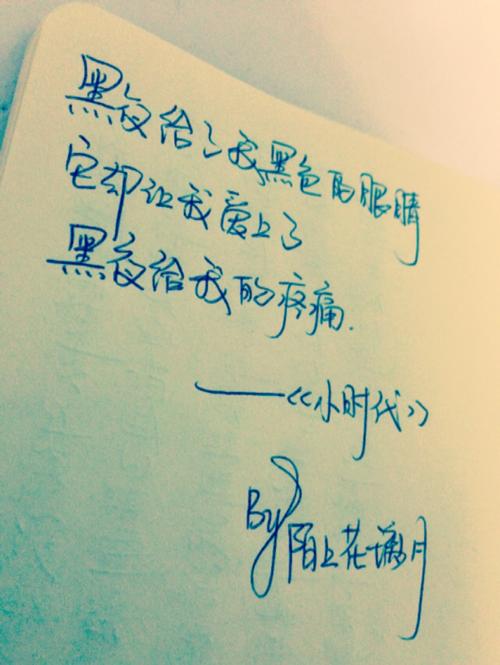 黑夜给了我黑色的眼睛
它却让我爱上了
黑夜给我的疼痛.
——《小时代》
By 陌上花漪月